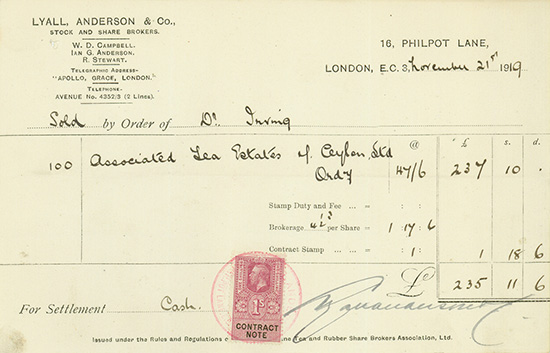 LYALL, ANDERSON & Co.,
STOCK AND SHARE BROKERS.
W. D. CAMPBELL.
IAN G. ANDERSON.
R. STEWART.
TELEGRAPHIC ADDRESS-
"APOLLO, GRACE, LONDON."
TELEPHONE-
AVENUE No. 4352/3 (2 Lines).
16, PHILPOT LANE,
LONDON, E.C. 3, November 21st 1919
Sold by Order of Dr. Irving
@ £ s. d.
100 Associated Tea Estates of Ceylon, Ltd
Ordy 47/6 237 10 .
Stamp Duty and Fee ... ... = : :
Brokerage 4½d per Share = 1 : 17 : 6
Contract Stamp ... ... = : 1 : 1 18 6
£ 235 11 6
For Settlement Cash.
1s
CONTRACT
NOTE
Issued under the Rules and Regulations Tea and Rubber Share Brokers Association, Ltd.